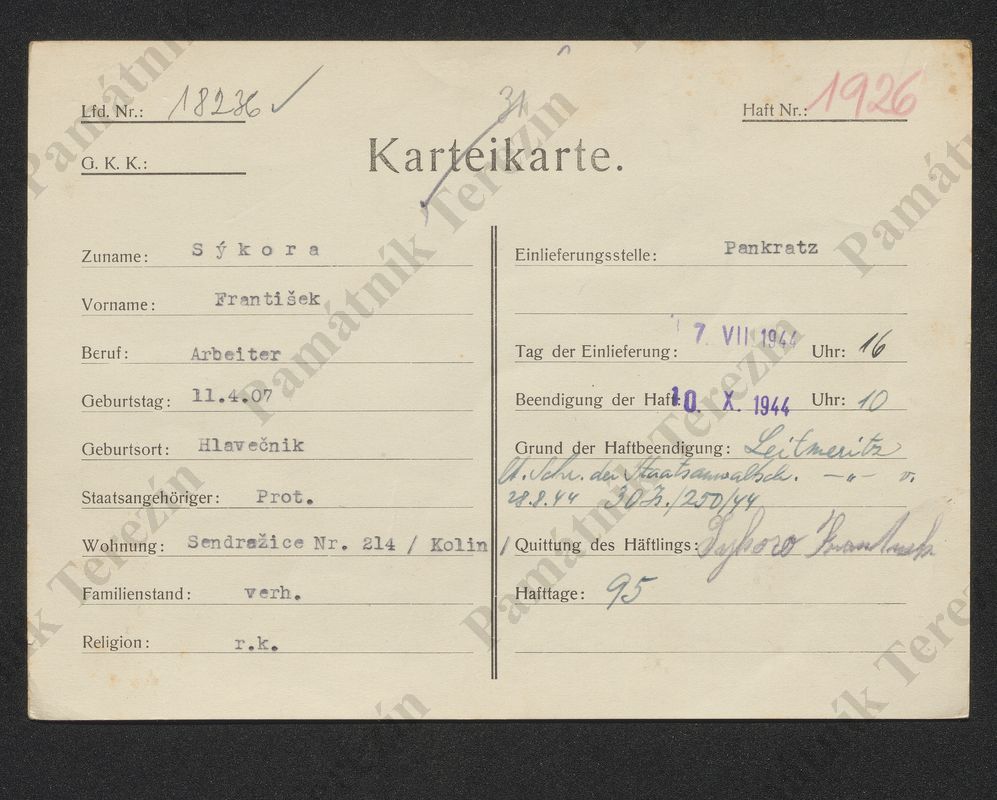 Lfd. Nr.: 18236 ✓
31
Haft Nr.: 1926
G. K. K.:
Karteikarte.
Zuname: Sýkora
Vorname: František
Beruf: Arbeiter
Geburtstag: 11.4.07
Geburtsort: Hlavečnik
Staatsangehöriger: Prot.
Wohnung: Sendražice Nr. 214 / Kolin /
Familienstand: verh.
Religion: r.k.
Einlieferungsstelle: Pankratz
Tag der Einlieferung: 7. VII 1944 Uhr: 16
Beendigung der Haft: 10. X. 1944 Uhr: 10
Grund der Haftbeendigung: Leitmeritz
lt. Schr. der Staatsanwaltsch. -"- v.
28.8.44 30 Js./250/44
Quittung des Häftlings: Sykora František
Hafttage: 95
Památník Terezín
Památník Terezín
Památník Terezín
Památník Terezín
Památník Terezín